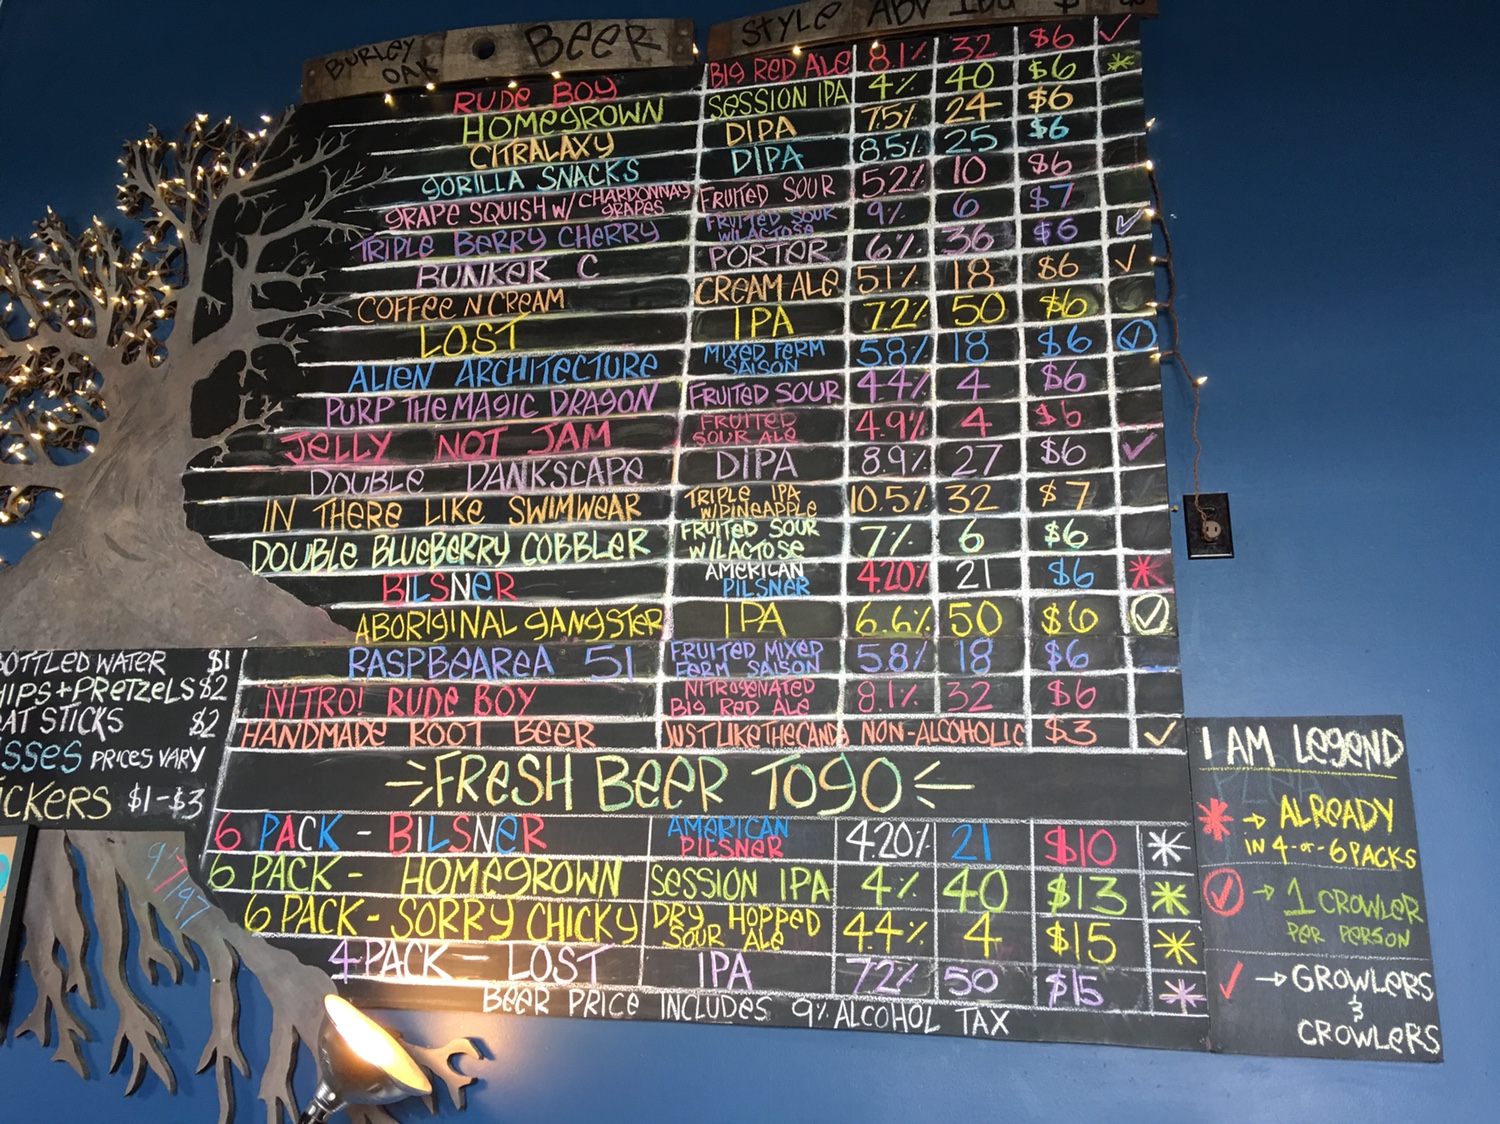 BURLEY OAK BEER STYLE ABV IBU $
RUDE BOY BIG RED ALE 8.1% 32 $6 ✓
HOMEGROWN SESSION IPA 4% 40 $6 *
CITRALAXY DIPA 7.5% 24 $6
GORILLA SNACKS DIPA 8.5% 25 $6
GRAPE SQUISH W/ CHARDONNAY GRAPES FRUITED SOUR 5.2% 10 $6
TRIPLE BERRY CHERRY FRUITED SOUR W/LACTOSE 9% 6 $7
BUNKER C PORTER 6% 36 $6 ✓
COFFEE N CREAM CREAM ALE 5.1% 18 $6 ✓
LOST IPA 7.2% 50 $6
ALIEN ARCHITECTURE MIXED FERM SAISON 5.8% 18 $6 ✓
PURP THE MAGIC DRAGON FRUITED SOUR 4.4% 4 $6
JELLY NOT JAM FRUITED SOUR ALE 4.9% 4 $6
DOUBLE DANKSCAPE DIPA 8.9% 27 $6 ✓
IN THERE LIKE SWIMWEAR TRIPLE IPA W/PINEAPPLE 10.5% 32 $7
DOUBLE BLUEBERRY COBBLER FRUITED SOUR W/LACTOSE 7% 6 $6
BILSNER AMERICAN PILSNER 4.20% 21 $6 *
ABORIGINAL GANGSTER IPA 6.6% 50 $6 ✓
RASPBEAREA 51 FRUITED MIXED FERM SAISON 5.8% 18 $6
NITRO! RUDE BOY NITROGENATED BIG RED ALE 8.1% 32 $6
HANDMADE ROOT BEER JUST LIKE THE CANDY NON-ALCOHOLIC $3 ✓
BOTTLED WATER $1
HIPS + PRETZELS $2
EAT STICKS $2
SSES PRICES VARY
ICKERS $1-$3
FRESH BEER TO GO
6 PACK - BILSNER AMERICAN PILSNER 4.20% 21 $10 *
6 PACK - HOMEGROWN SESSION IPA 4% 40 $13 *
6 PACK - SORRY CHICKY DRY HOPPED SOUR ALE 4.4% 4 $15 *
4 PACK - LOST IPA 7.2% 50 $15 *
BEER PRICE INCLUDES 9% ALCOHOL TAX
I AM LEGEND
* → ALREADY
IN 4-or-6 PACKS
✓ → 1 CROWLER
PER PERSON
✓ → GROWLERS
&
CROWLERS